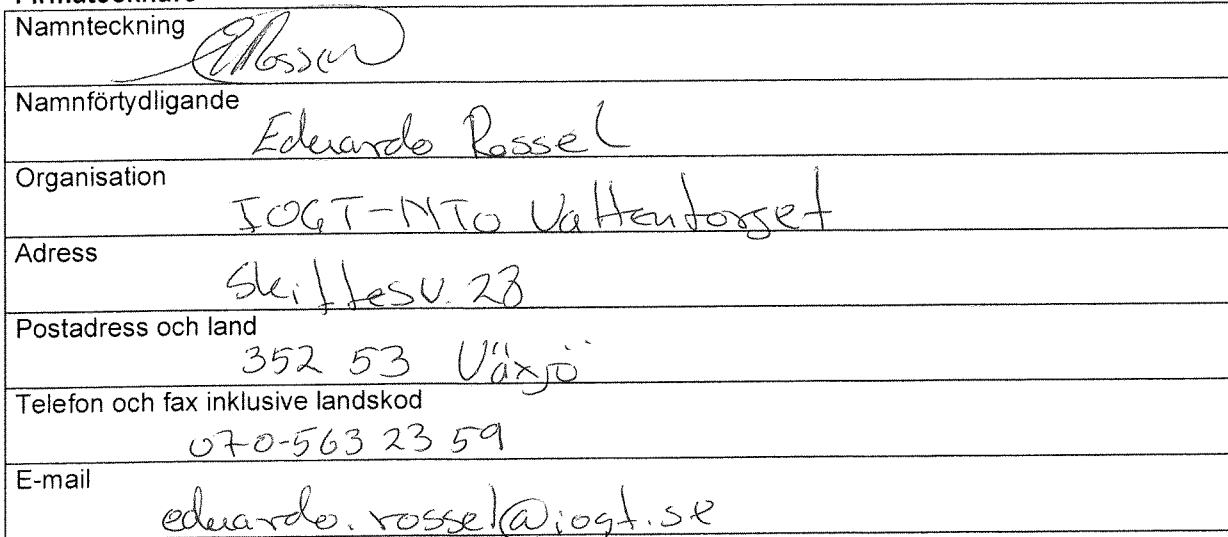 Namnteckning
Namnförtydligande
Eduardo Rossel
Organisation
IOGT-NTO Vattentorget
Adress
Skiftesv. 28
Postadress och land
352 53 Växjö
Telefon och fax inklusive landskod
070-563 23 59
E-mail
eduardo.rossel@iogt.se